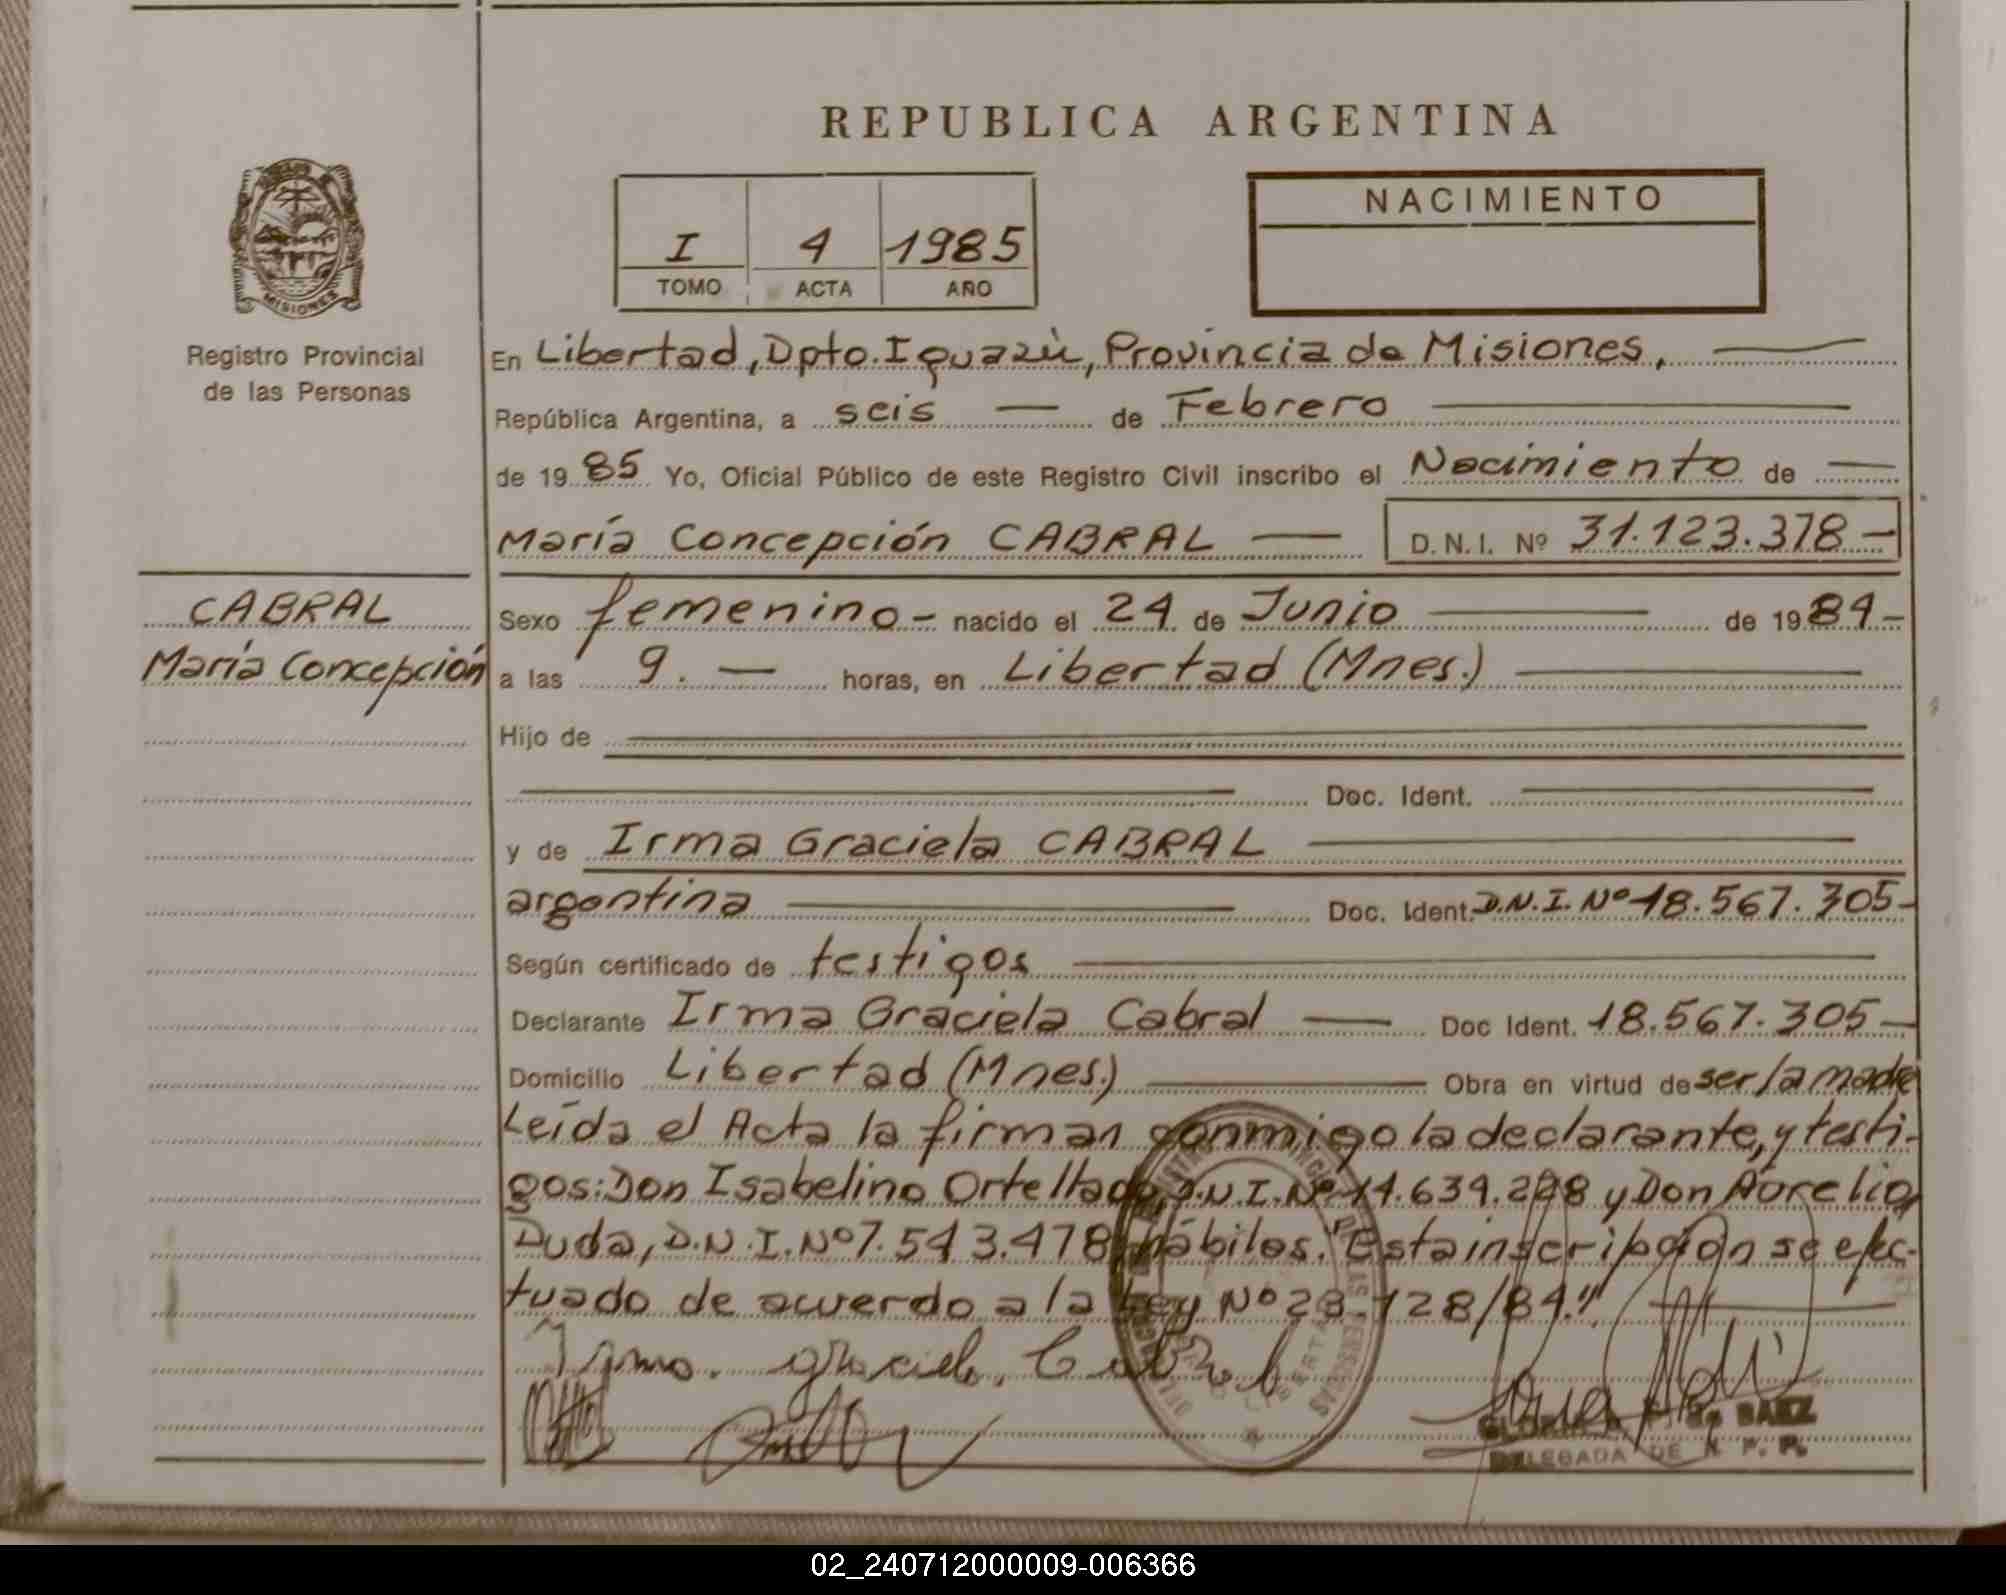 REPUBLICA ARGENTINA
NACIMIENTO
I 4 1985
TOMO ACTA AÑO
MISIONES
Registro Provincial
de las Personas
En Libertad, Dpto. Iguazú, Provincia de Misiones,
República Argentina, a seis de Febrero
de 1985 Yo, Oficial Público de este Registro Civil inscribo el Nacimiento de
María Concepción CABRAL D.N.I. Nº 31.123.378
CABRAL
María Concepción
Sexo femenino nacido el 24 de Junio de 1984
a las 9. horas, en Libertad (Mnes.)
Hijo de
Doc. Ident.
y de Irma Graciela CABRAL
argentina Doc. Ident. D.N.I. Nº 18.567.305
Según certificado de testigos
Declarante Irma Graciela Cabral Doc Ident. 18.567.305
Domicilio Libertad (Mnes.) Obra en virtud de ser la madre
Leída el Acta la firman conmigo la declarante, y testi-
gos: Don Isabelino Ortellado, D.N.I. Nº 14.639.228 y Don Aurelio
Duda, D.N.I. Nº 7.543.478 hábiles. "Esta inscripción se efec-
tuado de acuerdo a la Ley Nº 23.128/84."
Irma. graciela. Cabral
DE BAEZ
DELEGADA DE R. P. P.
02_240712000009-006366